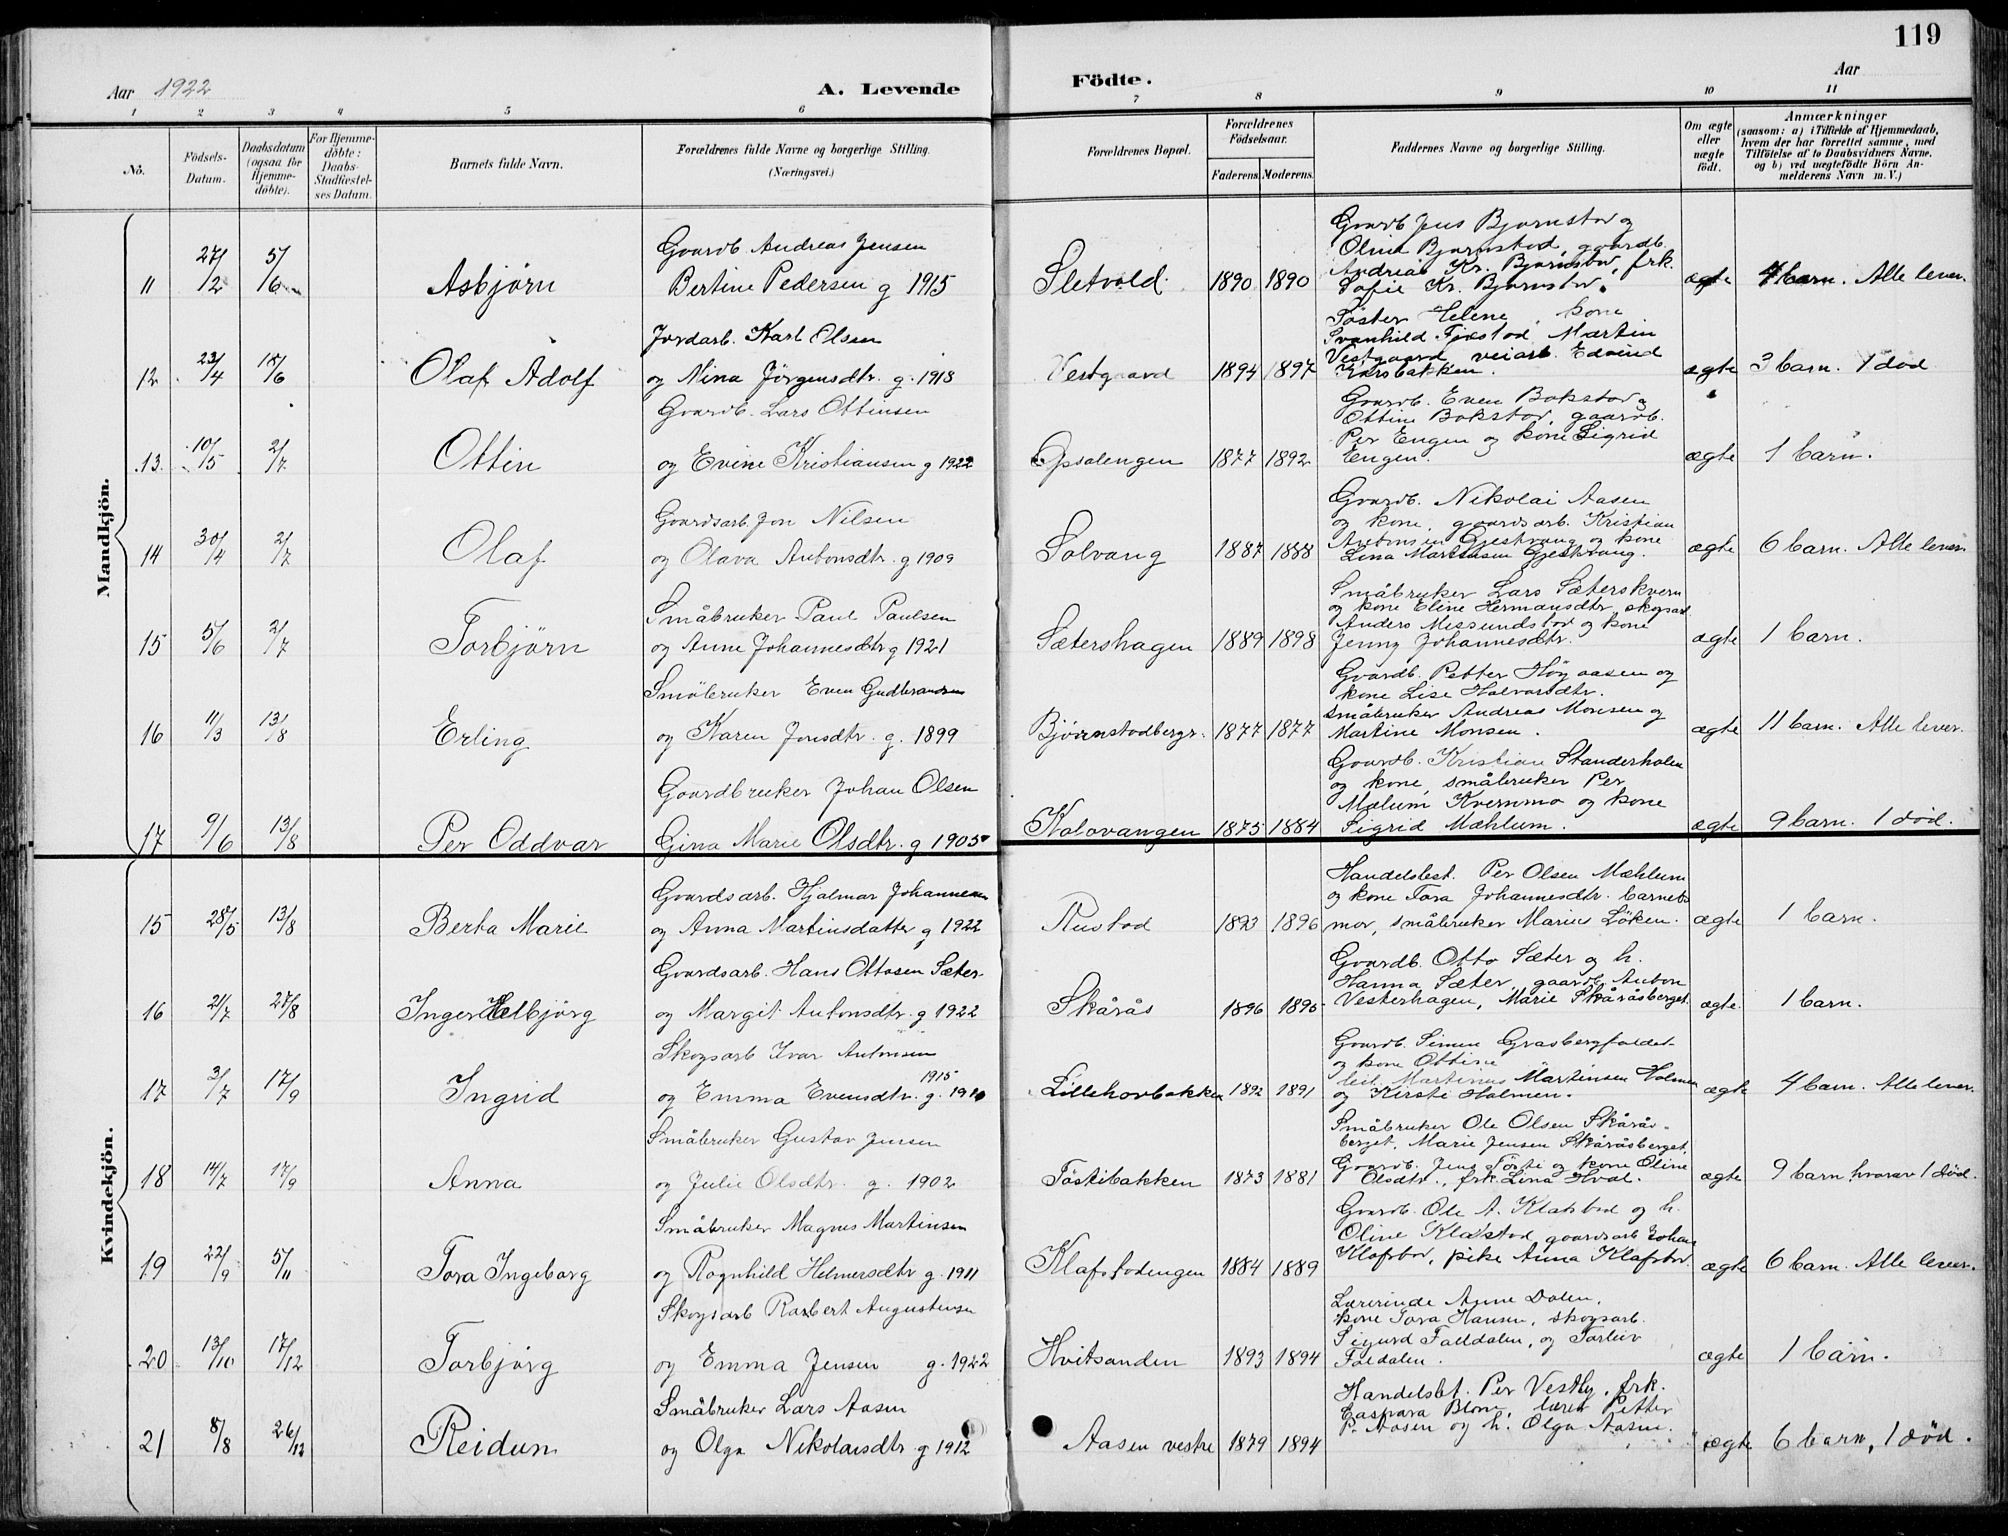 119
Aar 1922
A. Levende
Födte.
Aar
1 2 3 4 5 6 7 8 9 10 11
No.
Födsels-
Datum.
Daabsdatum
(ogsaa for
Hjemme-
döbte).
For Hjemme-
döbte:
Daabs-
Stadfæstel-
ses Datum.
Barnets fulde Navn.
Forældrenes fulde Navne og borgerlige Stilling.
(Næringsvei.)
Forældrenes Bopæl.
Forældrenes
Födselsaar.
Faderens. Moderens.
Faddernes Navne og borgerlige Stilling.
Om ægte
eller
uægte
födt.
Anmærkninger
(saasom: a) i Tilfælde af Hjemmedaab,
hvem der har forrettet samme, med
Tilföielse af to Daabsvidners Navne.
og b) ved uægtefödte Börn An-
melderens Navn m. V.)
Mandkjön.
11 27/12 5/6 Asbjörn
Gaardb Andreas Jensen
Bertine Pedersen g 1915
Sletvold 1890 1890
Gaardb Jens Bjørnstad og
Oline Bjørnstad, gaardb.
Andreas Kr. Bjørnstad, frk.
Sofie Kr. Bjørnstad.
ægte 4 barn. Alle lever.
12 23/4 15/6 Olaf Adolf
Jordarb. Karl Olsen
og Nina Jörgensdtr. g. 1918
Vestgaard 1894 1897
Söster Helene, kone
Svanhild Fjæstad, Martin
Vestgaard, veiarb. Edvind
Korsbakken.
ægte 3 barn. 1 död
13. 10/5 2/7 Ottin
Gaardb. Lars Ottinsen
og Evine Kristiansen g 1922
Opsalengen 1877 1892
Gaardb. Even Bakstad og
Ottine Bakstad, gaardb.
Per Engen og kone Sigrid
Engen.
ægte 1 barn.
14 30/4 2/7 Olaf
Gaardsarb. Jon Nilsen
og Olava Antonsdtr. g 1909
Solvang 1887 1888
Gaardb. Nikolai Aasen
og kone, gaardsarb. Kristian
Antonsen Gjestvang og kone
Lina Martinsen Gjestvang.
ægte 6 barn. Alle lever.
15 5/6 2/7 Torbjörn
Småbruker Paul Paulsen
og Anne Johannesdtr g 1921
Sætershagen 1889 1898
Småbruker Lars Sæterskvern
og kone Eline Hermansdtr, skogsarb
Anders Messundstad og kone
Jenny Johannesdtr.
ægte 1 barn.
16 11/3 13/8 Erling
Småbruker Even Gudbrandsen
og Karen Jonsdtr. g. 1899
Bjørnstadbergr. 1877 1877
Gaardb. Petter Höyaasen og
kone Lise Halvorsdtr.
småbruker Andreas Monsen og
Martine Monsen.
ægte 11 barn. Alle lever.
17 9/6 13/8 Per Oddvar
Gaardbruker Johan Olsen
Gina Marie Olsdtr. g 1905
Kolovangen 1875 1884
Gaardb. Kristian Standerholen
og kone, småbruker Per
Mælum Kvernmo og kone
Sigrid Mæhlum.
ægte 9 barn. 1 död.
Kvindekjön.
15 28/5 13/8 Berta Marie
Gaardsarb. Hjalmar Johannesen
og Anna Martinsdatter g 1922
Rustad 1893 1896
Handelsbest. Per Olsen Mæhlum
og kone Tora Johannesdtr. barnets
mor, småbruker Marius Löken.
ægte 1 barn.
16 21/7 27/8 Inger Helbjörg
Gaardsarb. Hans Ottosen Sæter
og Margit Antonsdtr. g 1922
Skårås 1896 1895
Gaardb. Otto Sæter og h.
Hanna Sæter, gaardb. Anton
Vesterhagen, Marie Skåråsberget
ægte. 1 barn.
17 3/7 17/9 Ingrid
Skogsarb Ivar Antonsen
og Emma Evensdtr. g. 1915
Lillehovbakken 1892 1891
Gaardb. Simen Grasbergfaldet
og kone Ottine
leil. Martinus Martinsen Holmen
og Kirsti Holmen.
ægte 4 barn. Alle lever.
18 14/7 17/9 Anna
Småbruker Gustav Jensen
og Julie Olsdtr. g. 1902
Töstibakken 1873 1881
Småbruker Ole Olsen Skårås-
berget, Marie Jensen Skåråsberget,
Gaardb. Jens Tösti og kone Oline
Olsdtr., frk. Lina Hval.
ægte 9 barn, hvorav 1 död.
19 22/9 5/11 Tora Ingeborg
Småbruker Magnus Martinsen
og Ragnhild Helmersdtr g. 1911
Klafstadengen 1884 1889
Gaardb. Ole A. Klafstad og h.
Oline Klafstad, gaardsarb Johan
Klafstad, pike Anna Klafstad
ægte 6 barn. Alle lever.
20 13/10 17/12 Torbjörg
Skogsarb Robert Augustinsen
og Emma Jensen g. 1922
Hvitsanden 1893 1894
Lærerinde Anne Dalen,
kone Tora Hansen, skogsarb.
Sigurd Falldalen, og Torleiv
Faldalen.
ægte 1 barn.
21 8/8 26/12 Reidun
Småbruker Lars Aasen
og Olga Nikolaisdtr g 1912
Aasen vestre 1879 1894
Handelsbt. Per Vestby, frk.
Caspara Blom, lærer Petter
P. Aasen og h. Olga Aasen.
ægte 6 barn, 1 död.